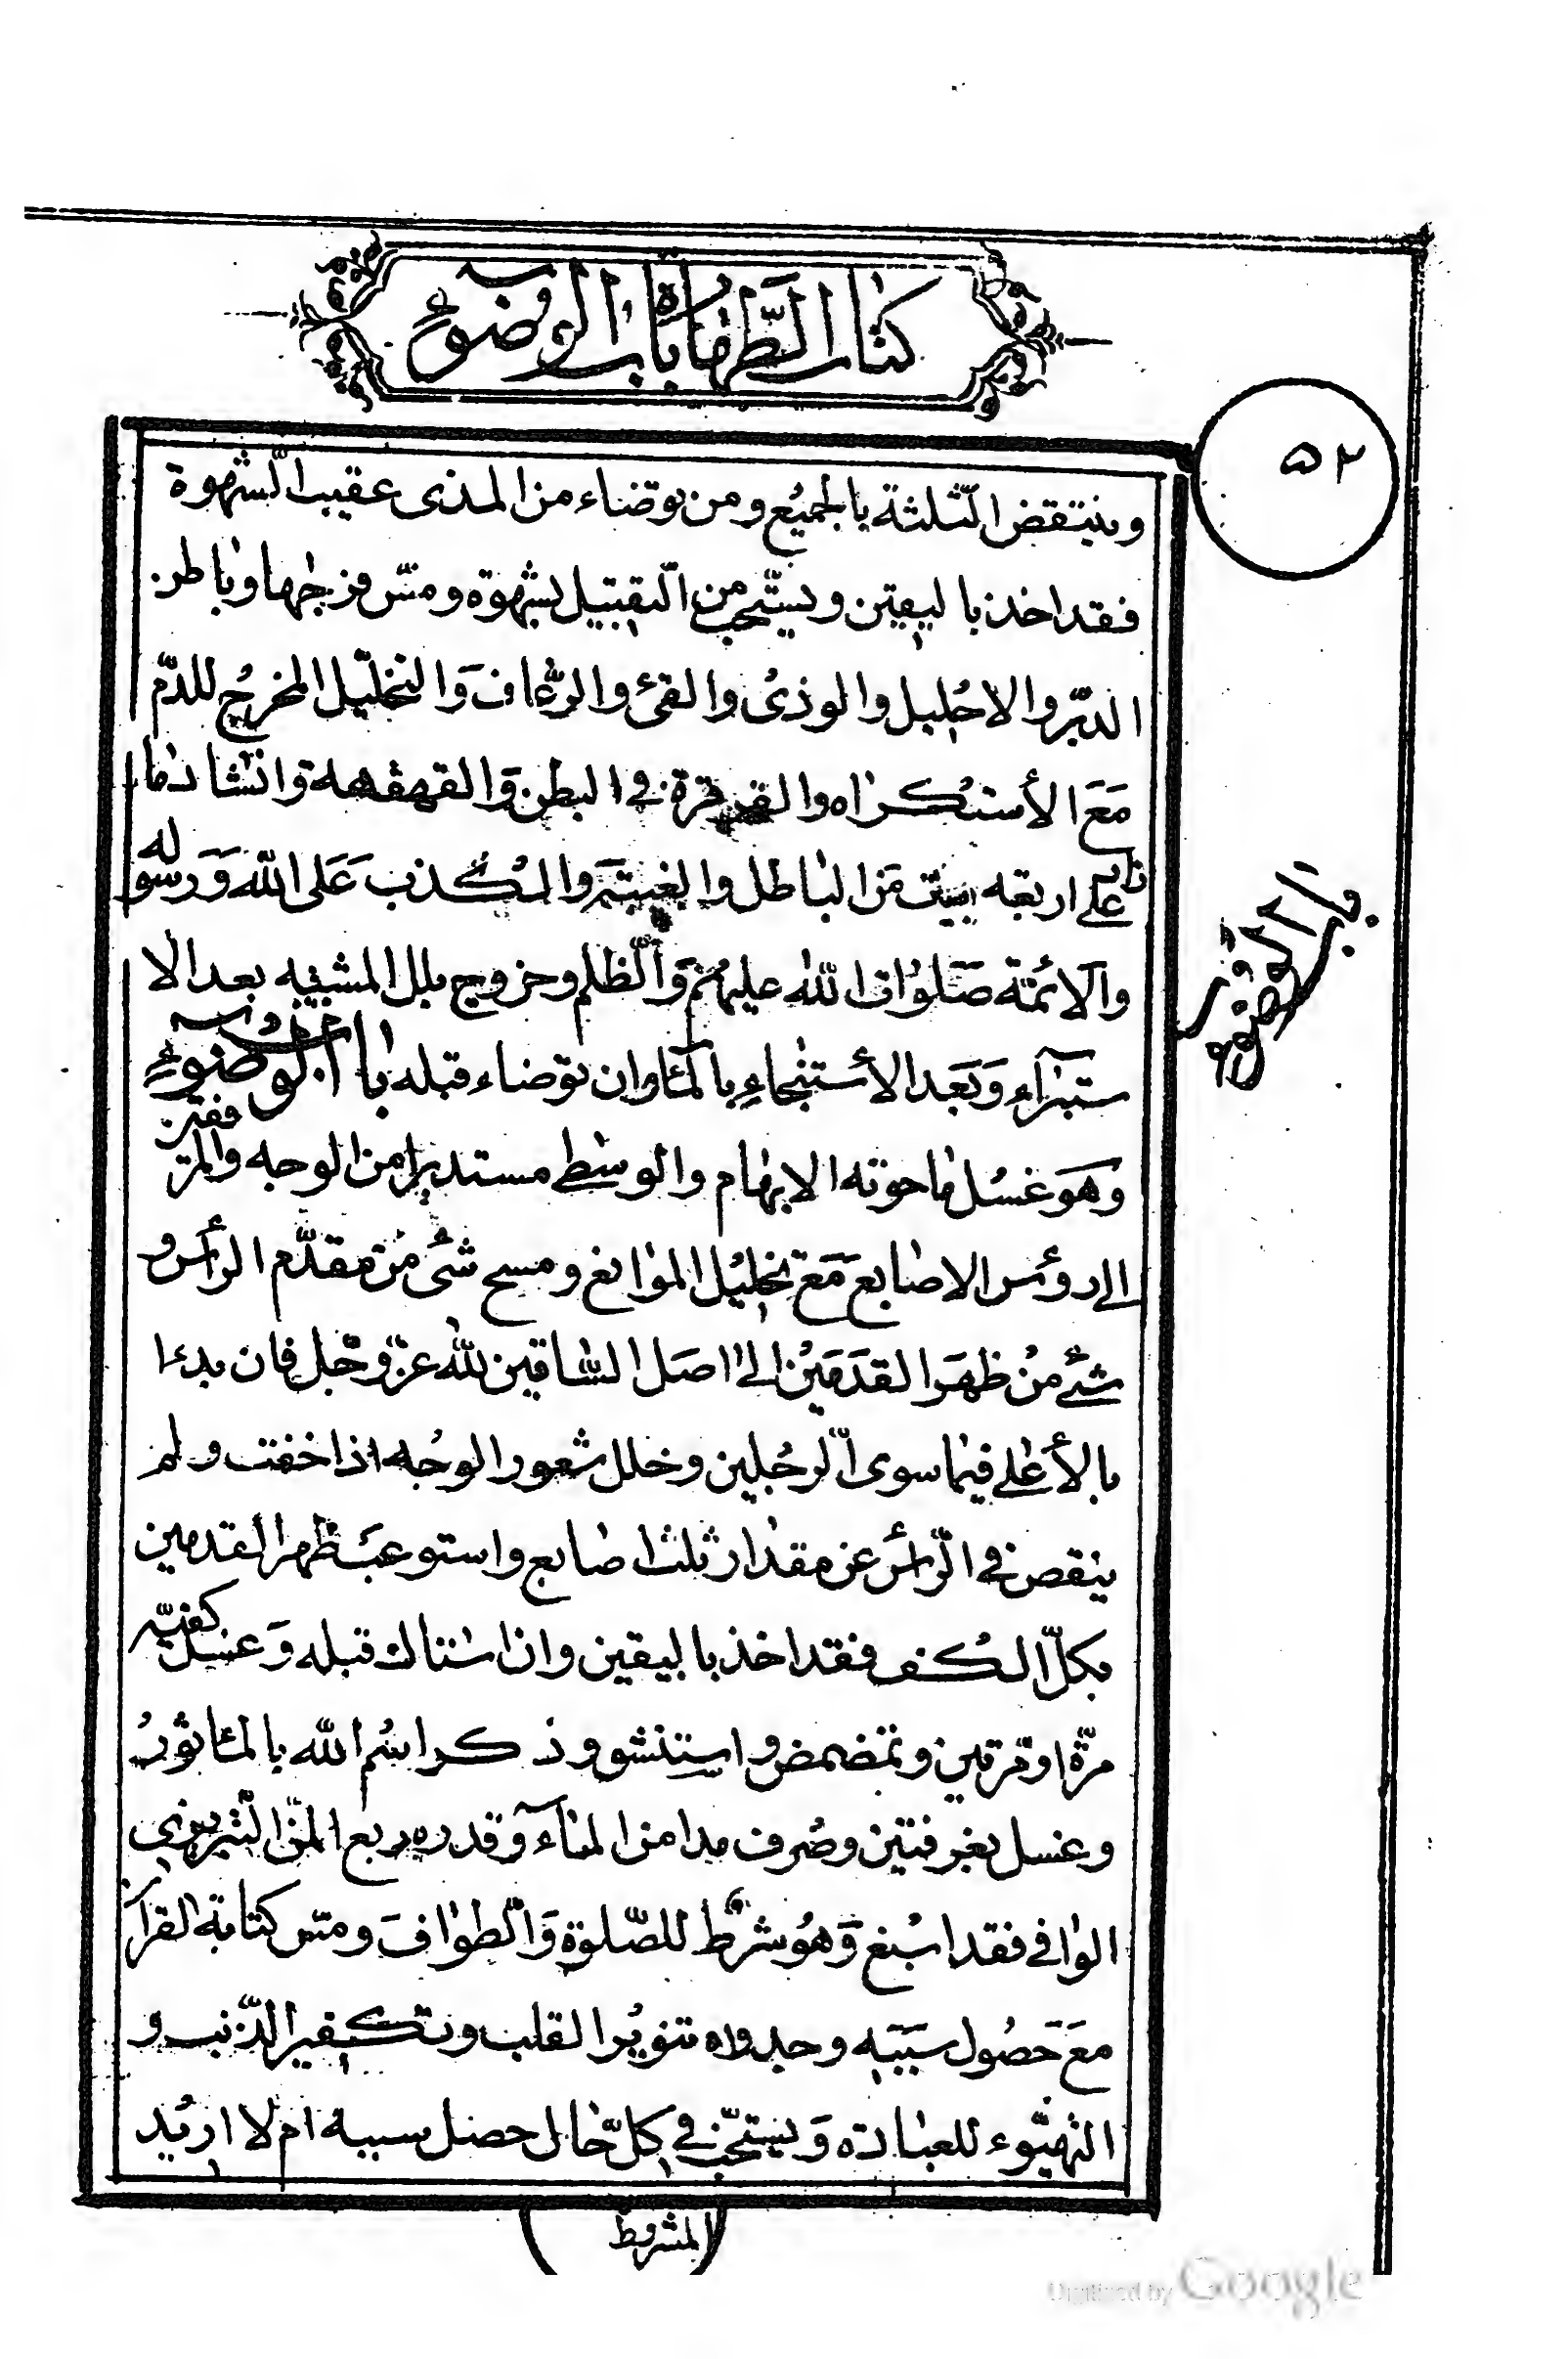 كتاب الطهارة باب الوضوء
۵۲
وينتقض الثلثة بالجميع ومن توضاء من المذى عقيب الشهوة
فقد اخذ باليقين ويستحب من التقبيل بشهوة ومس فرجها وباطن
الدبر والاحليل والوذى والقئ والرعاف والتخليل المخرج للدم
مع الأستكراه والقرقرة في البطن والقهقهة وانشاد ما
زاد على اربعه ابيات من الباطل والغيبة والكذب على الله ورسوله
والائمة صلوات الله عليهم والظلم وخروج بلل المشتبه بعد الا
ستبراء وبعد الأستنجاء بالماء وان توضاء قبله باب الوضوء
وهو غسل ما حوته الابهام والوسطى مستديرا من الوجه والمرفقين
الى رؤس الاصابع مع تخليل الموانع ومسح شئ من مقدم الرأس و
شئ من ظهر القدمين الى اصل الساقين لله عز وجل فان بدءا
بالأعلى فيما سوى الرجلين وخلل شعور الوجه اذا خفت ولم
ينقص في الرأس عن مقدار ثلث اصابع واستوعب ظهر القدمين
بكل الكف فقد اخذ باليقين وان استاك قبله وغسل كفيه
مرة او مرتين وتمضمض واستنشق وذكر اسم الله بالمأثور
وغسل بغرفتين وصرف مدا من الماء وقدره ربع المن التبريزي
الوافي فقد اسبغ وهو شرط للصلوة والطواف ومس كتابة القرآن
مع حصول سببه وجدواه تنوير القلب وتكفير الذنب و
التهيؤء للعبادة ويستحب في كل حال حصل سببه ام لا اريد
المشروط
باب الوضوء